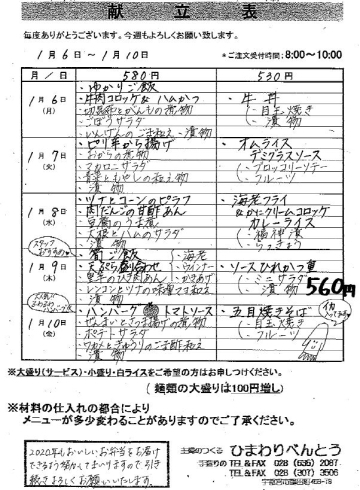 献立表
毎度ありがとうございます。今週もよろしくお願い致します。
1月6日～1月10日
*ご注文受付時間:8:00～10:00
月/日 580円 530円
1月6日(月)
・ゆかりご飯
・牛肉コロッケ&ハムかつ
・切昆布とがんもの煮物
・ごぼうサラダ
・いんげんのごま和え・漬物
・牛丼
(・目玉焼き
・漬物)
1月7日(火)
・ピリ辛から揚げ
・おからの煮物
・マカロニサラダ
・青菜ともやしの和え物
・漬物
・オムライス
デミグラスソース
(・ブロッコリーソテー
・フルーツ)
1月8日(水)
・ツナとコーンのピラフ
・肉だんごの甘酢あん
・豆腐のうま煮
・大根とハムのサラダ
・漬物
・海老フライ
&かにクリームコロッケ
カレーライス
(・福神漬
・らっきょう)
スタッフおすすめ
1月9日(木)
・筍ご飯
・天ぷら盛合わせ
(・海老
・ウインナー
・かきあげ)
・里芋のひき肉あん
・レンコンとツナの味噌マヨ和え
・漬物
・ソースひれかつ重
(・ミニサラダ
・漬物)
560円
1月10日(金)
・ハンバーグ トマトソース
・ぜんまいとさつま揚げの煮物
・ポテトサラダ
・ワカメときゅうりのごま酢和え
・漬物
・五目焼きそば
(・目玉焼き
・フルーツ)
※大盛り(サービス)・小盛り・白ライスをご希望の方はお申しつけください。
(麺類の大盛りは100円増し)
※材料の仕入れの都合により
メニューが多少変わることがありますのでご了承ください。
2020年もおいしいお弁当をお届け
できるよう努めてまいりますので引き
続きよろしくお願いいたします。
主婦のつくる 手造りの ひまわりべんとう
TEL&FAX 028 (635) 2087
TEL&FAX 028 (307) 3505